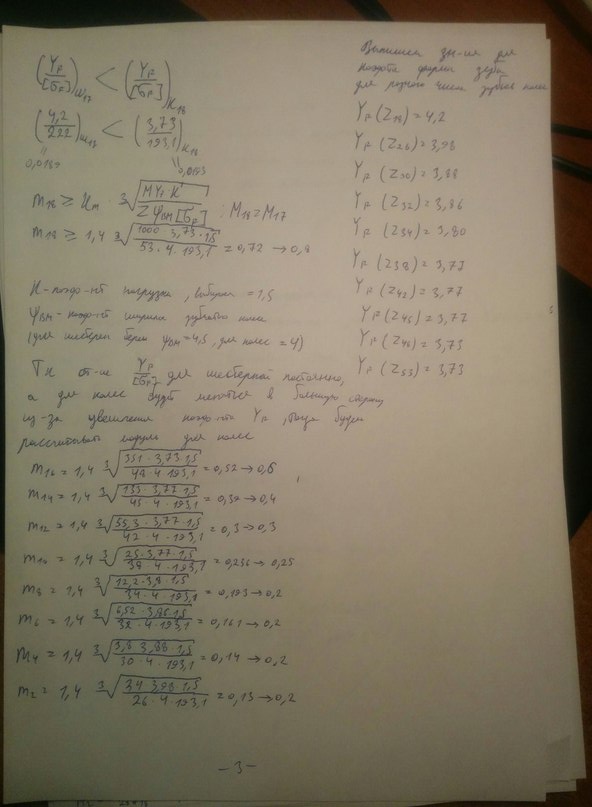 (Y_F/[σ_F])ш17 < (Y_F/[σ_F])к18
(4,2/222)ш17 < (3,73/193,1)к18
0,0189 0,0193
m18 ≥ Km · ∛(M Y_F K / Z ψвм [σ_F]) ; M18 = M17
m18 ≥ 1,4 ∛(1000 · 3,73 · 1,5 / 53 · 4 · 193,1) = 0,72 → 0,8
K - коэф-нт нагрузки, = 1,5
ψвм - коэф-нт ширины зубчатого колеса
(для шестерен ψвм = 4,5, для колес = 4)
Тк от-ие Y_F/[σ_F] для шестерной постоянно,
а для колес будет меняться в большую сторону
из-за увеличения коэф-нта Y_F, тогда будем
рассчитывать модуль для колес
m16 = 1,4 ∛(351 · 3,73 · 1,5 / 48 · 4 · 193,1) = 0,52 → 0,6
m14 = 1,4 ∛(133 · 3,77 · 1,5 / 45 · 4 · 193,1) = 0,39 → 0,4
m12 = 1,4 ∛(55,3 · 3,77 · 1,5 / 42 · 4 · 193,1) = 0,3 → 0,3
m10 = 1,4 ∛(25 · 3,77 · 1,5 / 38 · 4 · 193,1) = 0,236 → 0,25
m8 = 1,4 ∛(12,2 · 3,8 · 1,5 / 34 · 4 · 193,1) = 0,193 → 0,2
m6 = 1,4 ∛(6,52 · 3,86 · 1,5 / 32 · 4 · 193,1) = 0,161 → 0,2
m4 = 1,4 ∛(3,8 · 3,88 · 1,5 / 30 · 4 · 193,1) = 0,14 → 0,2
m2 = 1,4 ∛(34 · 3,98 · 1,5 / 26 · 4 · 193,1) = 0,13 → 0,2
Выпишем зн-ия для
коэф-та формы зуба
для разного числа зубьев колес
Y_F (Z18) = 4,2
Y_F (Z26) = 3,98
Y_F (Z30) = 3,88
Y_F (Z32) = 3,86
Y_F (Z34) = 3,80
Y_F (Z38) = 3,77
Y_F (Z42) = 3,77
Y_F (Z45) = 3,77
Y_F (Z48) = 3,73
Y_F (Z53) = 3,73
- 3 -